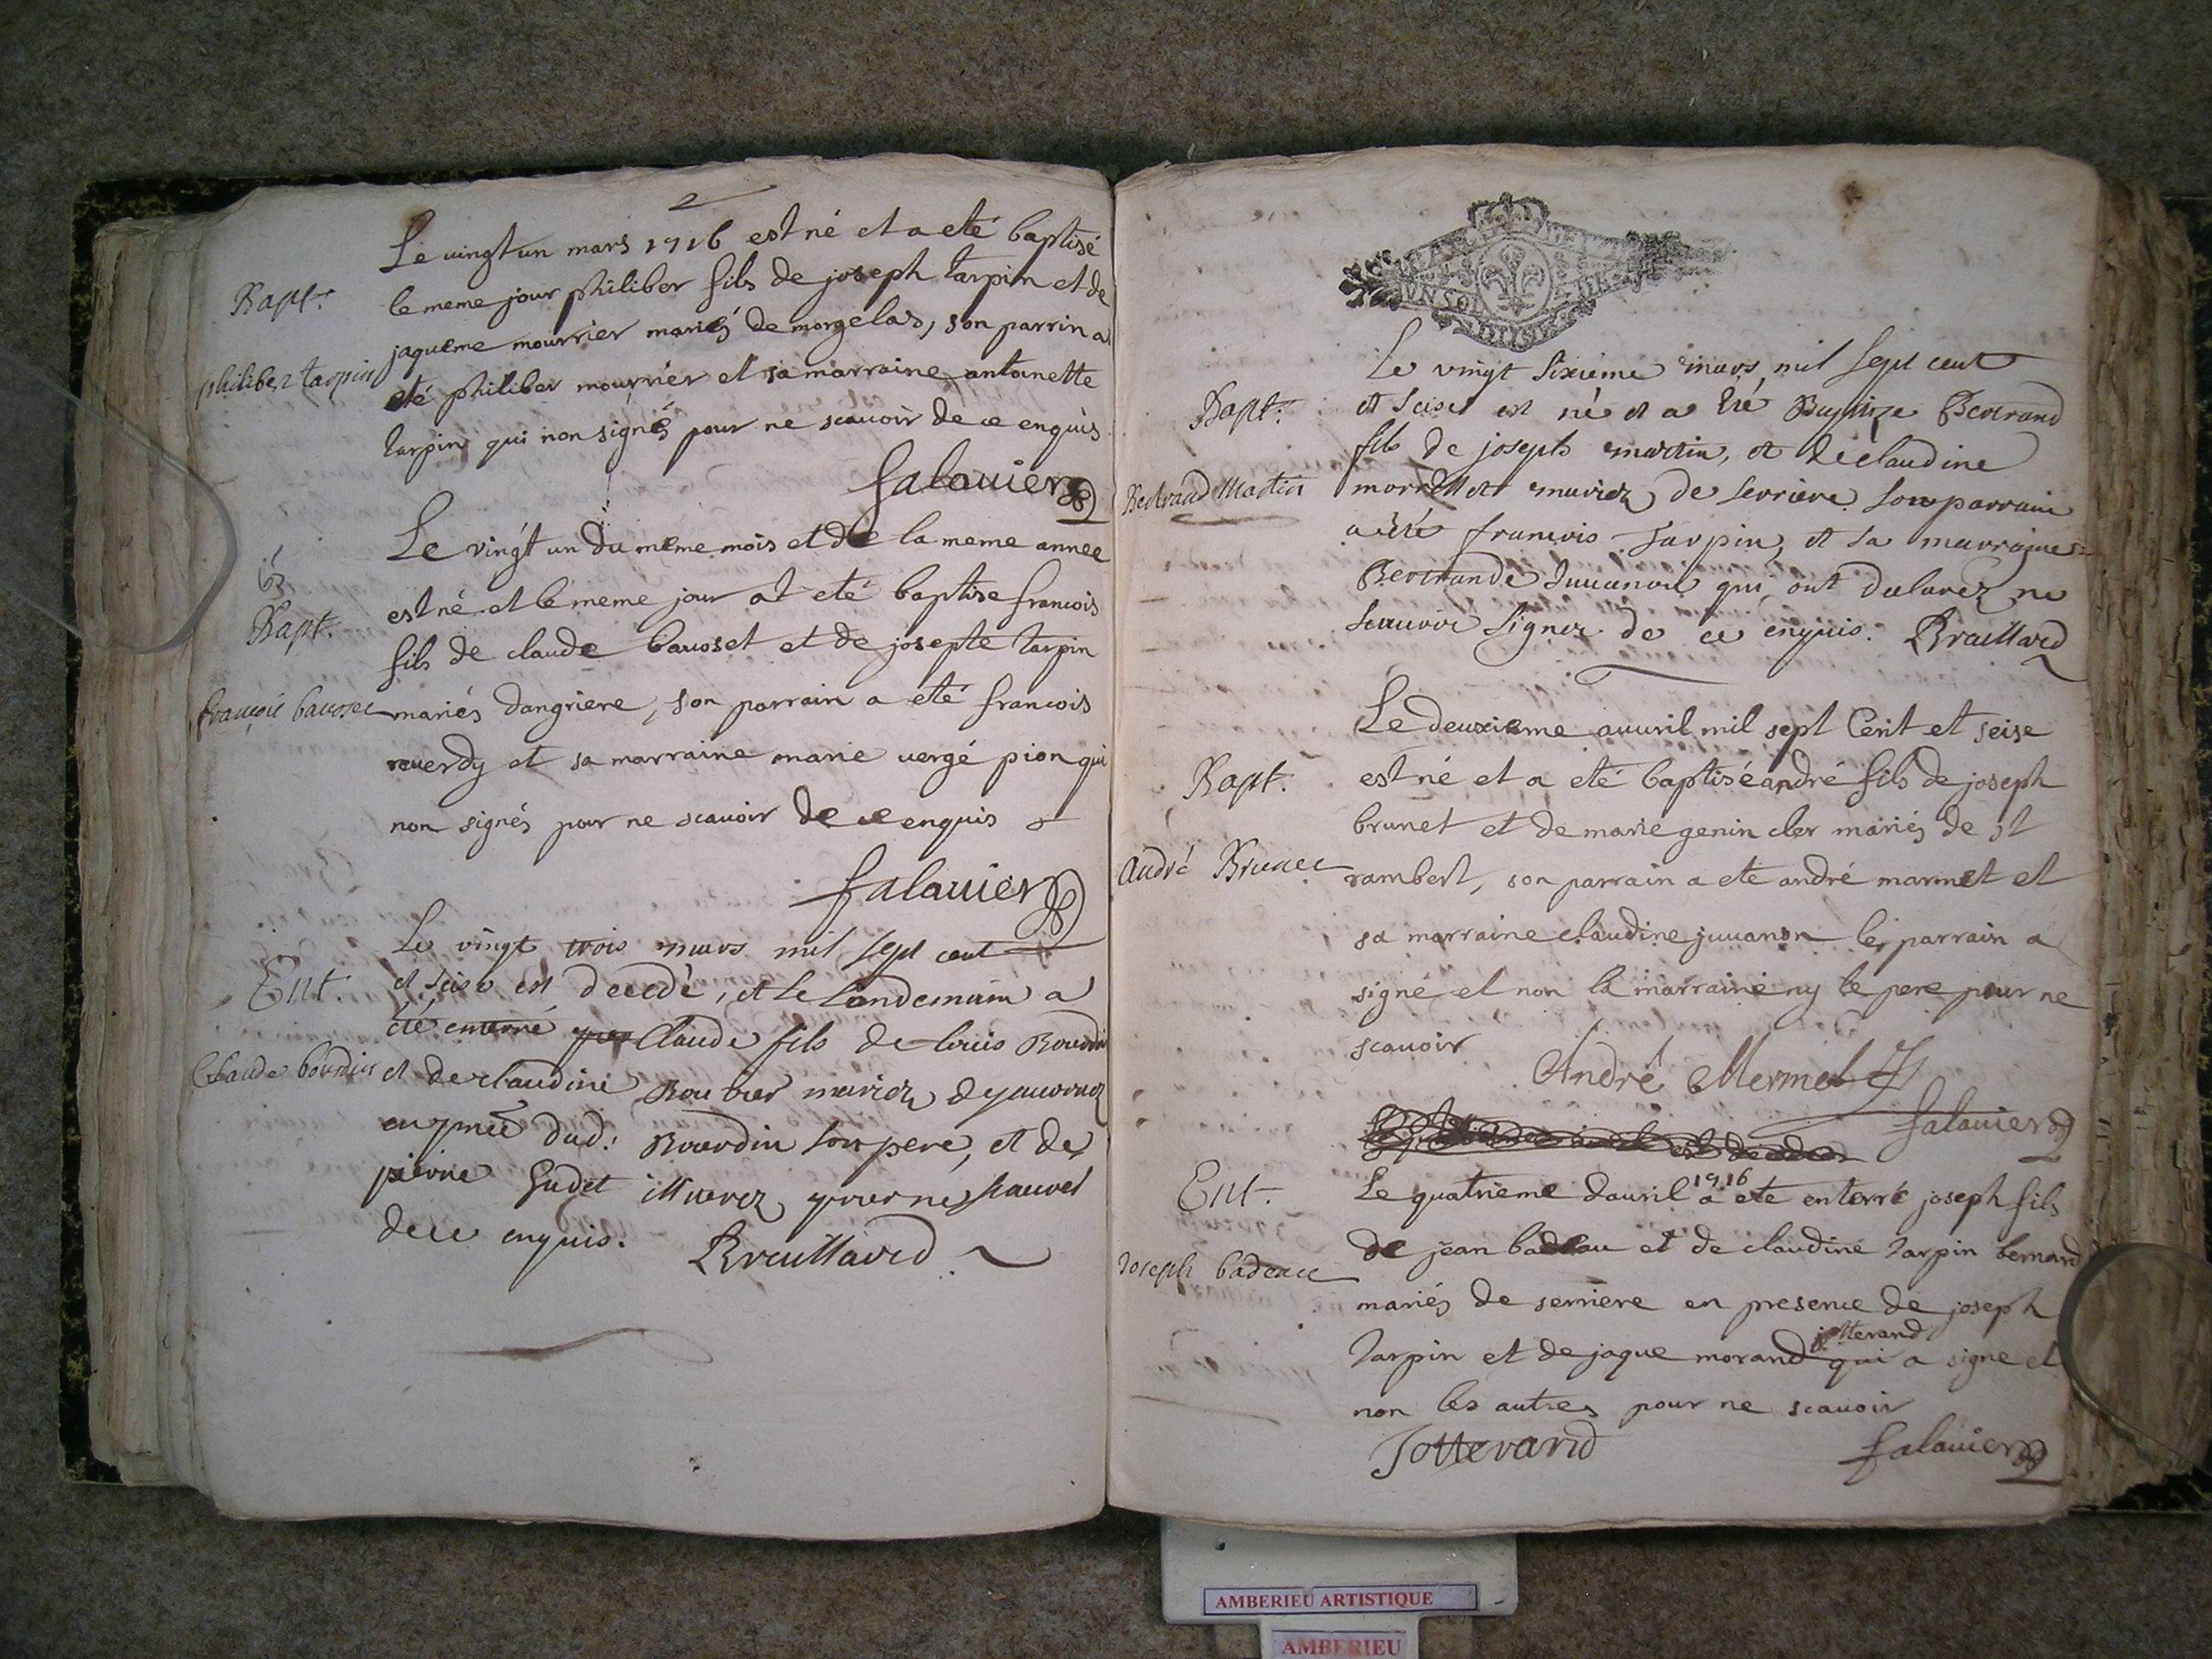 2
Le vingt un mars 1716 est né et a eté baptisé
Bapt. le meme jour philiber fils de joseph tarpin et de
jaqueme mourrier mariés de morgelas, son parrin a
philiber tarpin eté philiber mourrier et sa marraine antoinette
tarpin qui non signés pour ne scauoir de ce enquis
falauier
Le vingt un du meme mois et de la meme annee
Bapt. est né et le meme jour at eté baptise francois
fils de claude bauoset et de josepte tarpin
mariés dangriere, son parrain a eté francois
reuerdy et sa marraine marie uergé pion qui
non signés pour ne scauoir de ce enquis
falauier
Le vingt trois mars mil sept cent
Ent. et seise est decedé, et le landemain a
été enterré Claude fils de louis Bourdin
Claude bourdin et de claudine Boutier mariez
dud: Bourdin son pere, et de
pierre Gudet illiterez pour ne scauoir
de ce enquis. Brouillard
Le vingt sixieme mars mil sept cent
Bapt. et seise est né et a été Baptize Bertrand
fils de joseph martin, et de claudine
Bertrand Martin mariez de serriere son parrain
a été francois Tarpin, et sa marraine
Bertrande Juuanon qui ont declarez ne
scauoir signer de ce enquis. Brouillard
Le deuxieme auuril mil sept Cent et seise
Bapt. est né et a eté baptisé andré fils de joseph
brunet et de marie genin cler mariés de st
André Brunet
rambert, son parrain a ete andré marmet et
sa marraine claudine juuanon le parrain a
signé et non la marraine ny le pere pour ne
scauoir
André Mermet
falauier
Ent. Le quatrieme dauril 1716 a ete enterré joseph fils
de jean badeau et de claudine tarpin bernard
Joseph badeau
mariés de serriere en presence de joseph
jotterand
tarpin et de jaque morand qui a signe et
non les autres pour ne scauoir
Jotterand falauier
AMBERIEU ARTISTIQUE
AMBERIEU